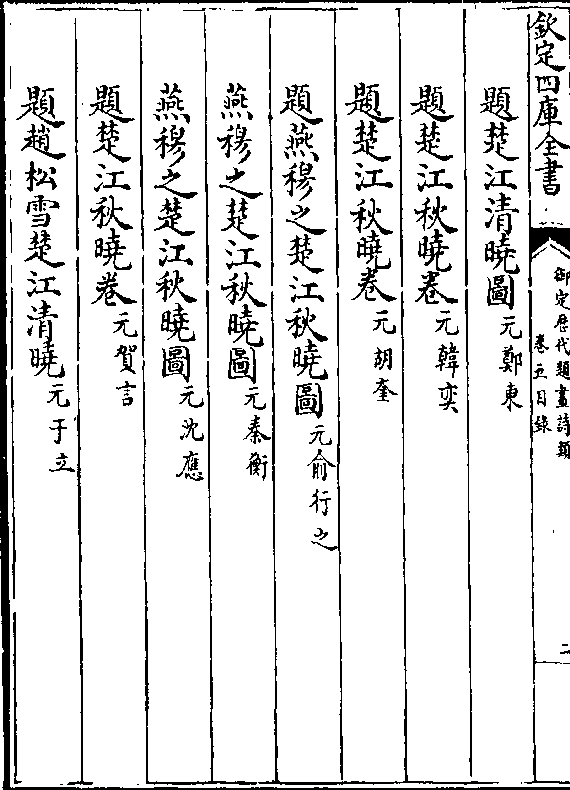 欽定四庫全書
御定歷代題畫詩類
卷五目錄
二
題楚江清曉圖 元鄭東
題楚江秋曉卷 元韓奕
題楚江秋曉卷 元胡奎
題燕穆之楚江秋曉圖 元俞行之
燕穆之楚江秋曉圖 元秦衡
燕穆之楚江秋曉圖 元沈應
題楚江秋曉卷 元賀言
題趙松雪楚江清曉 元于立